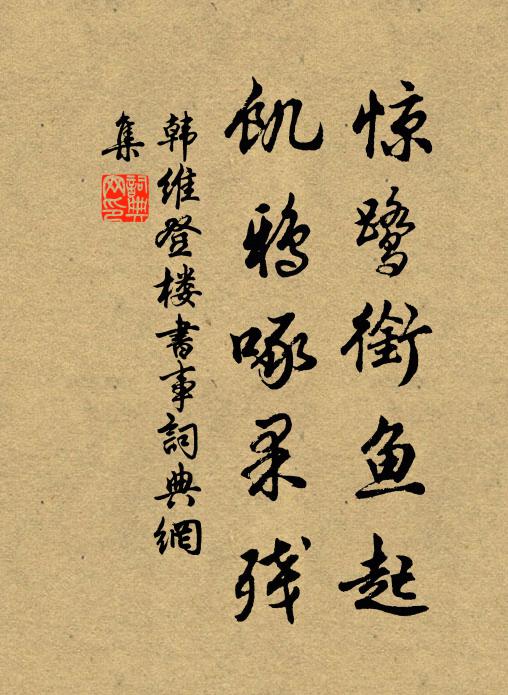 惊鹭衔鱼起
饥鸦啄果残
韩维登楼书事词典網
集
詞典
网印